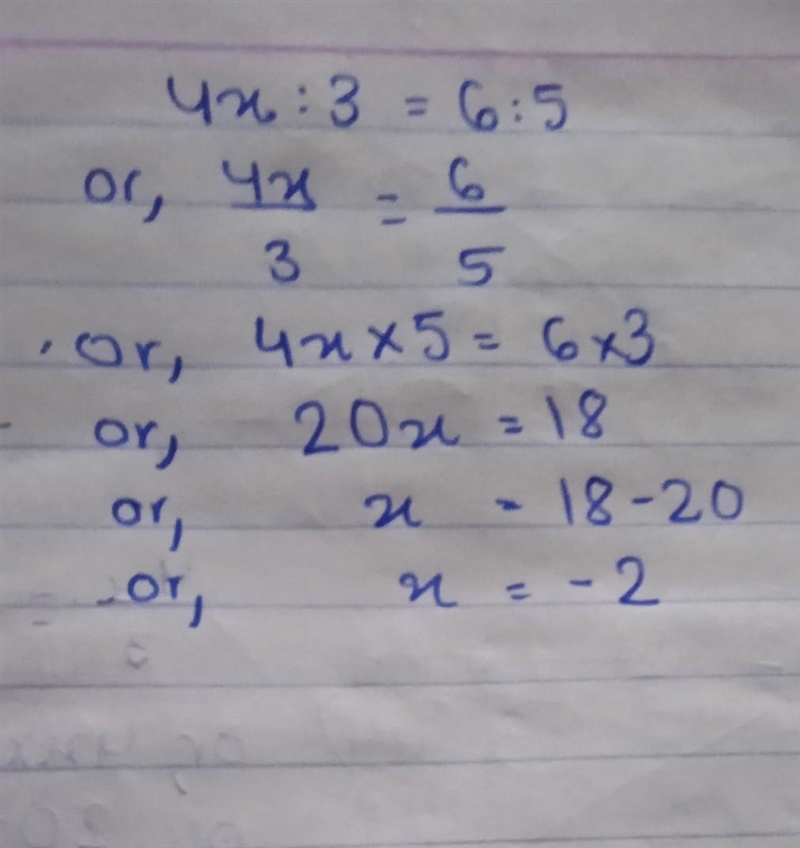 4x : 3 = 6 : 5
or, 4x/3 = 6/5
or, 4x × 5 = 6 × 3
or, 20x = 18
or, x = 18 - 20
or, x = -2